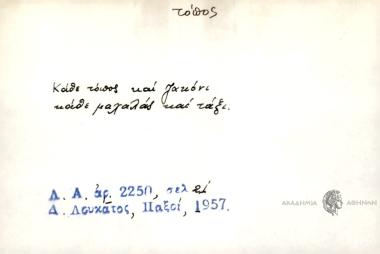 τόπος
Κάθε τόπος καί ζακόνι
κάθε μαχαλάς καί τάξι.
Λ. Α. ἀρ. 2250, σελ 21
Δ. Λουκᾶτος, Παξοί, 1957.
ΑΚΑΔΗΜΙΑ ΑΘΗΝΩΝ